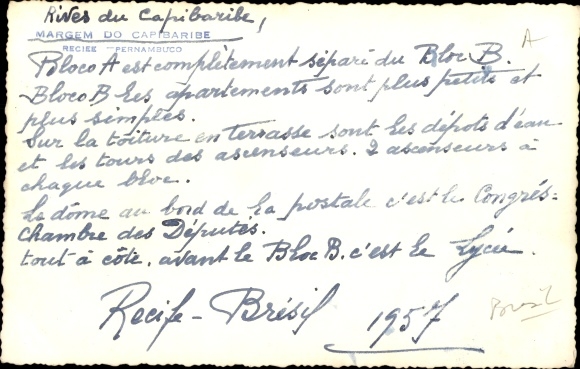 Rives du Capibaribe,
MARGEM DO CAPIBARIBE
RECIFE - PERNAMBUCO
A
Bloco A est complètement séparé du Bloc B.
Bloco B les apartements sont plus petits et
plus simples.
Sur la toiture en terrasse sont les dépots d'eau
et les tours des ascenseurs. 2 ascenseurs à
chaque bloc.
Le dôme au bord de la postale c'est le Congrés-
Chambre des Députés.
tout à côte, avant le Bloc B. c'est le Lycée.
Recife - Brésil 1957
Brésil